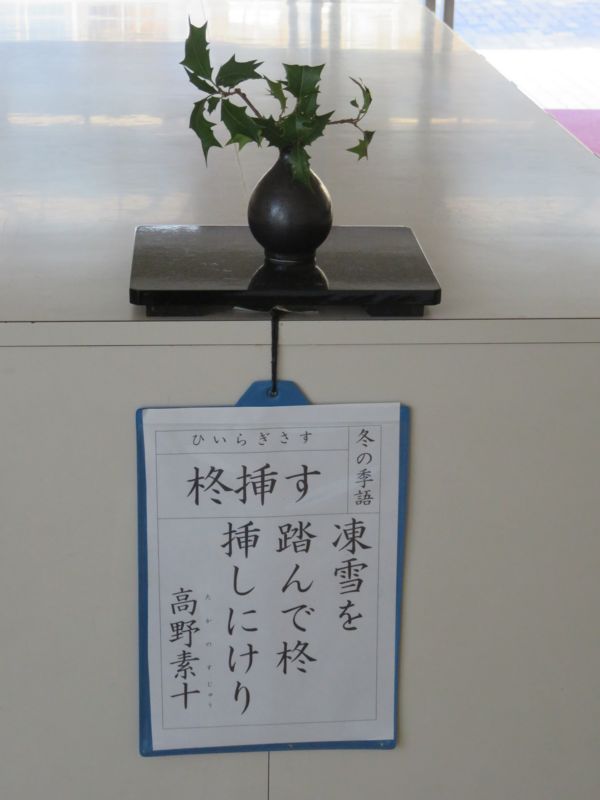 冬の季語
ひいらぎさす
柊挿す
凍雪を
踏んで柊
挿しにけり
高野素十
たかのすじゅう